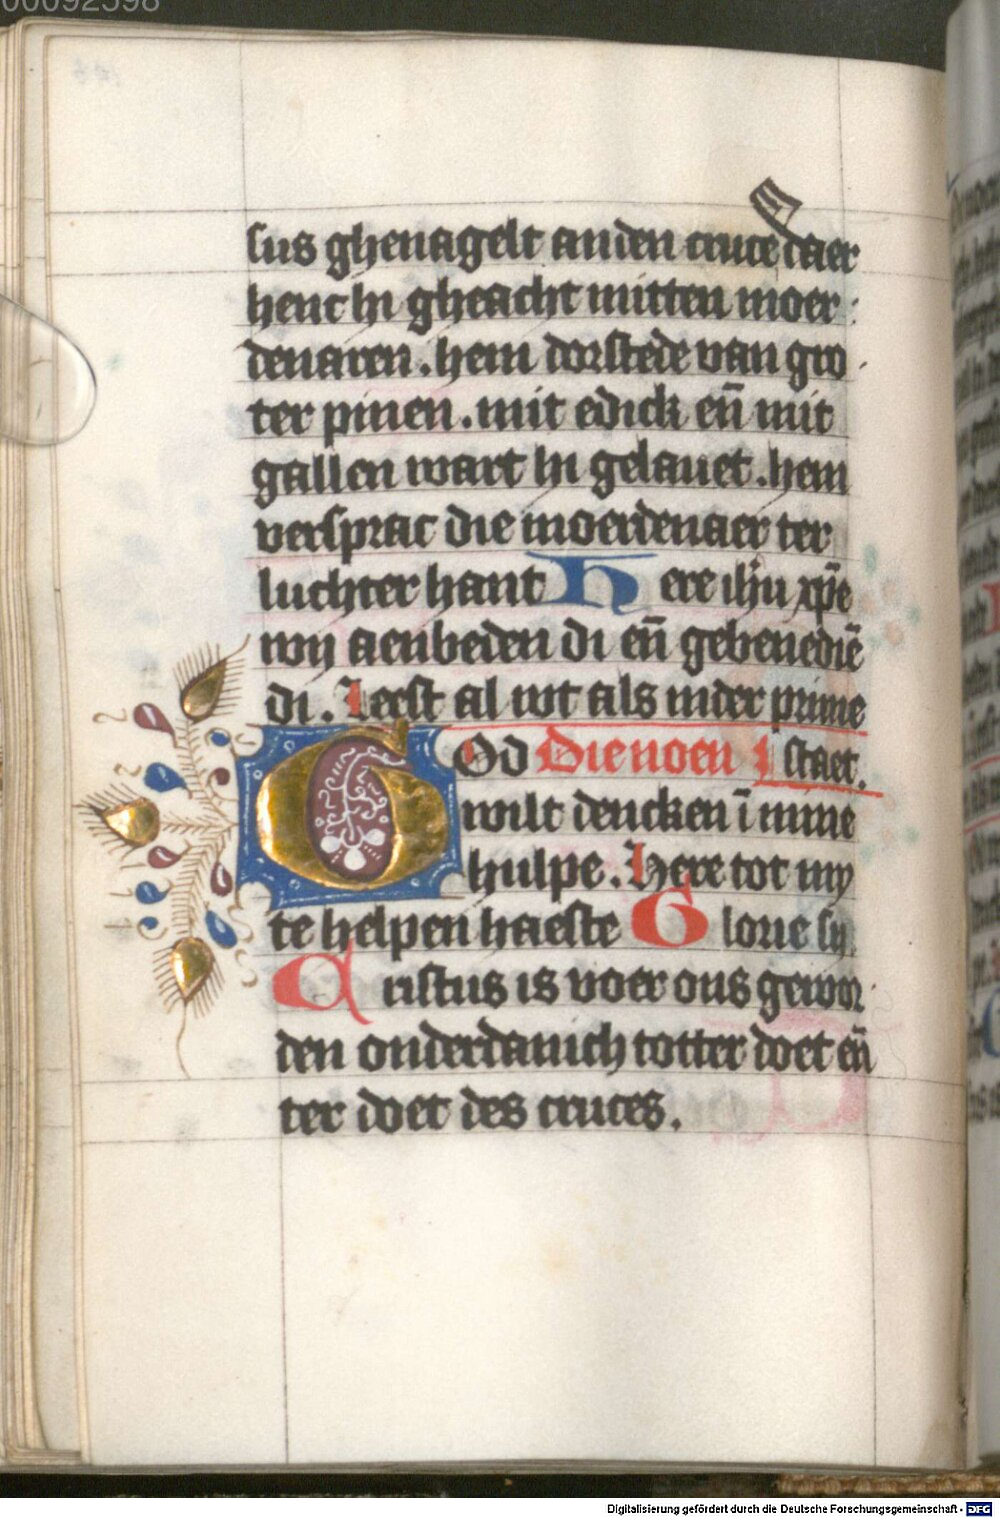 00092598
sus ghenagelt an den cruce daer
henc hi gheacht mitten moer
denaren. hem dorstede van gro
ter pinen. mit edick eñ mit
gallen wart hi gelauet. hem
versprac die moerdenaer ter
luchter hant Here ihū xp̄e
wij aenbeden di eñ gebenediē
di. Ierst al wt als inder prime
God Die noen I staet.
wilt dencken ī mine
hulpe. Here tot my
te helpen haeste Glorie sij.
Cristus is voer ons gewor
den onderdanich totter doet eñ
ter doet des cruces.
Digitalisierung gefördert durch die Deutsche Forschungsgemeinschaft - DFG